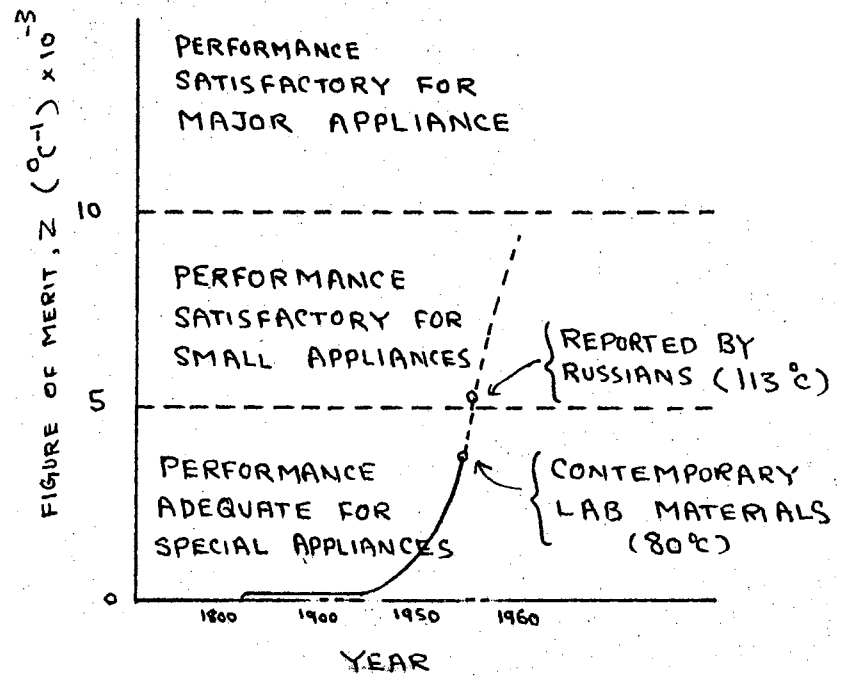 FIGURE OF MERIT, Z (°C⁻¹) × 10⁻³
PERFORMANCE
SATISFACTORY FOR
MAJOR APPLIANCE
10
PERFORMANCE
SATISFACTORY FOR
SMALL APPLIANCES
REPORTED BY
RUSSIANS (113°C)
5
PERFORMANCE
ADEQUATE FOR
SPECIAL APPLIANCES
CONTEMPORARY
LAB MATERIALS
(80°C)
0
1800 1900 1950 1960
YEAR